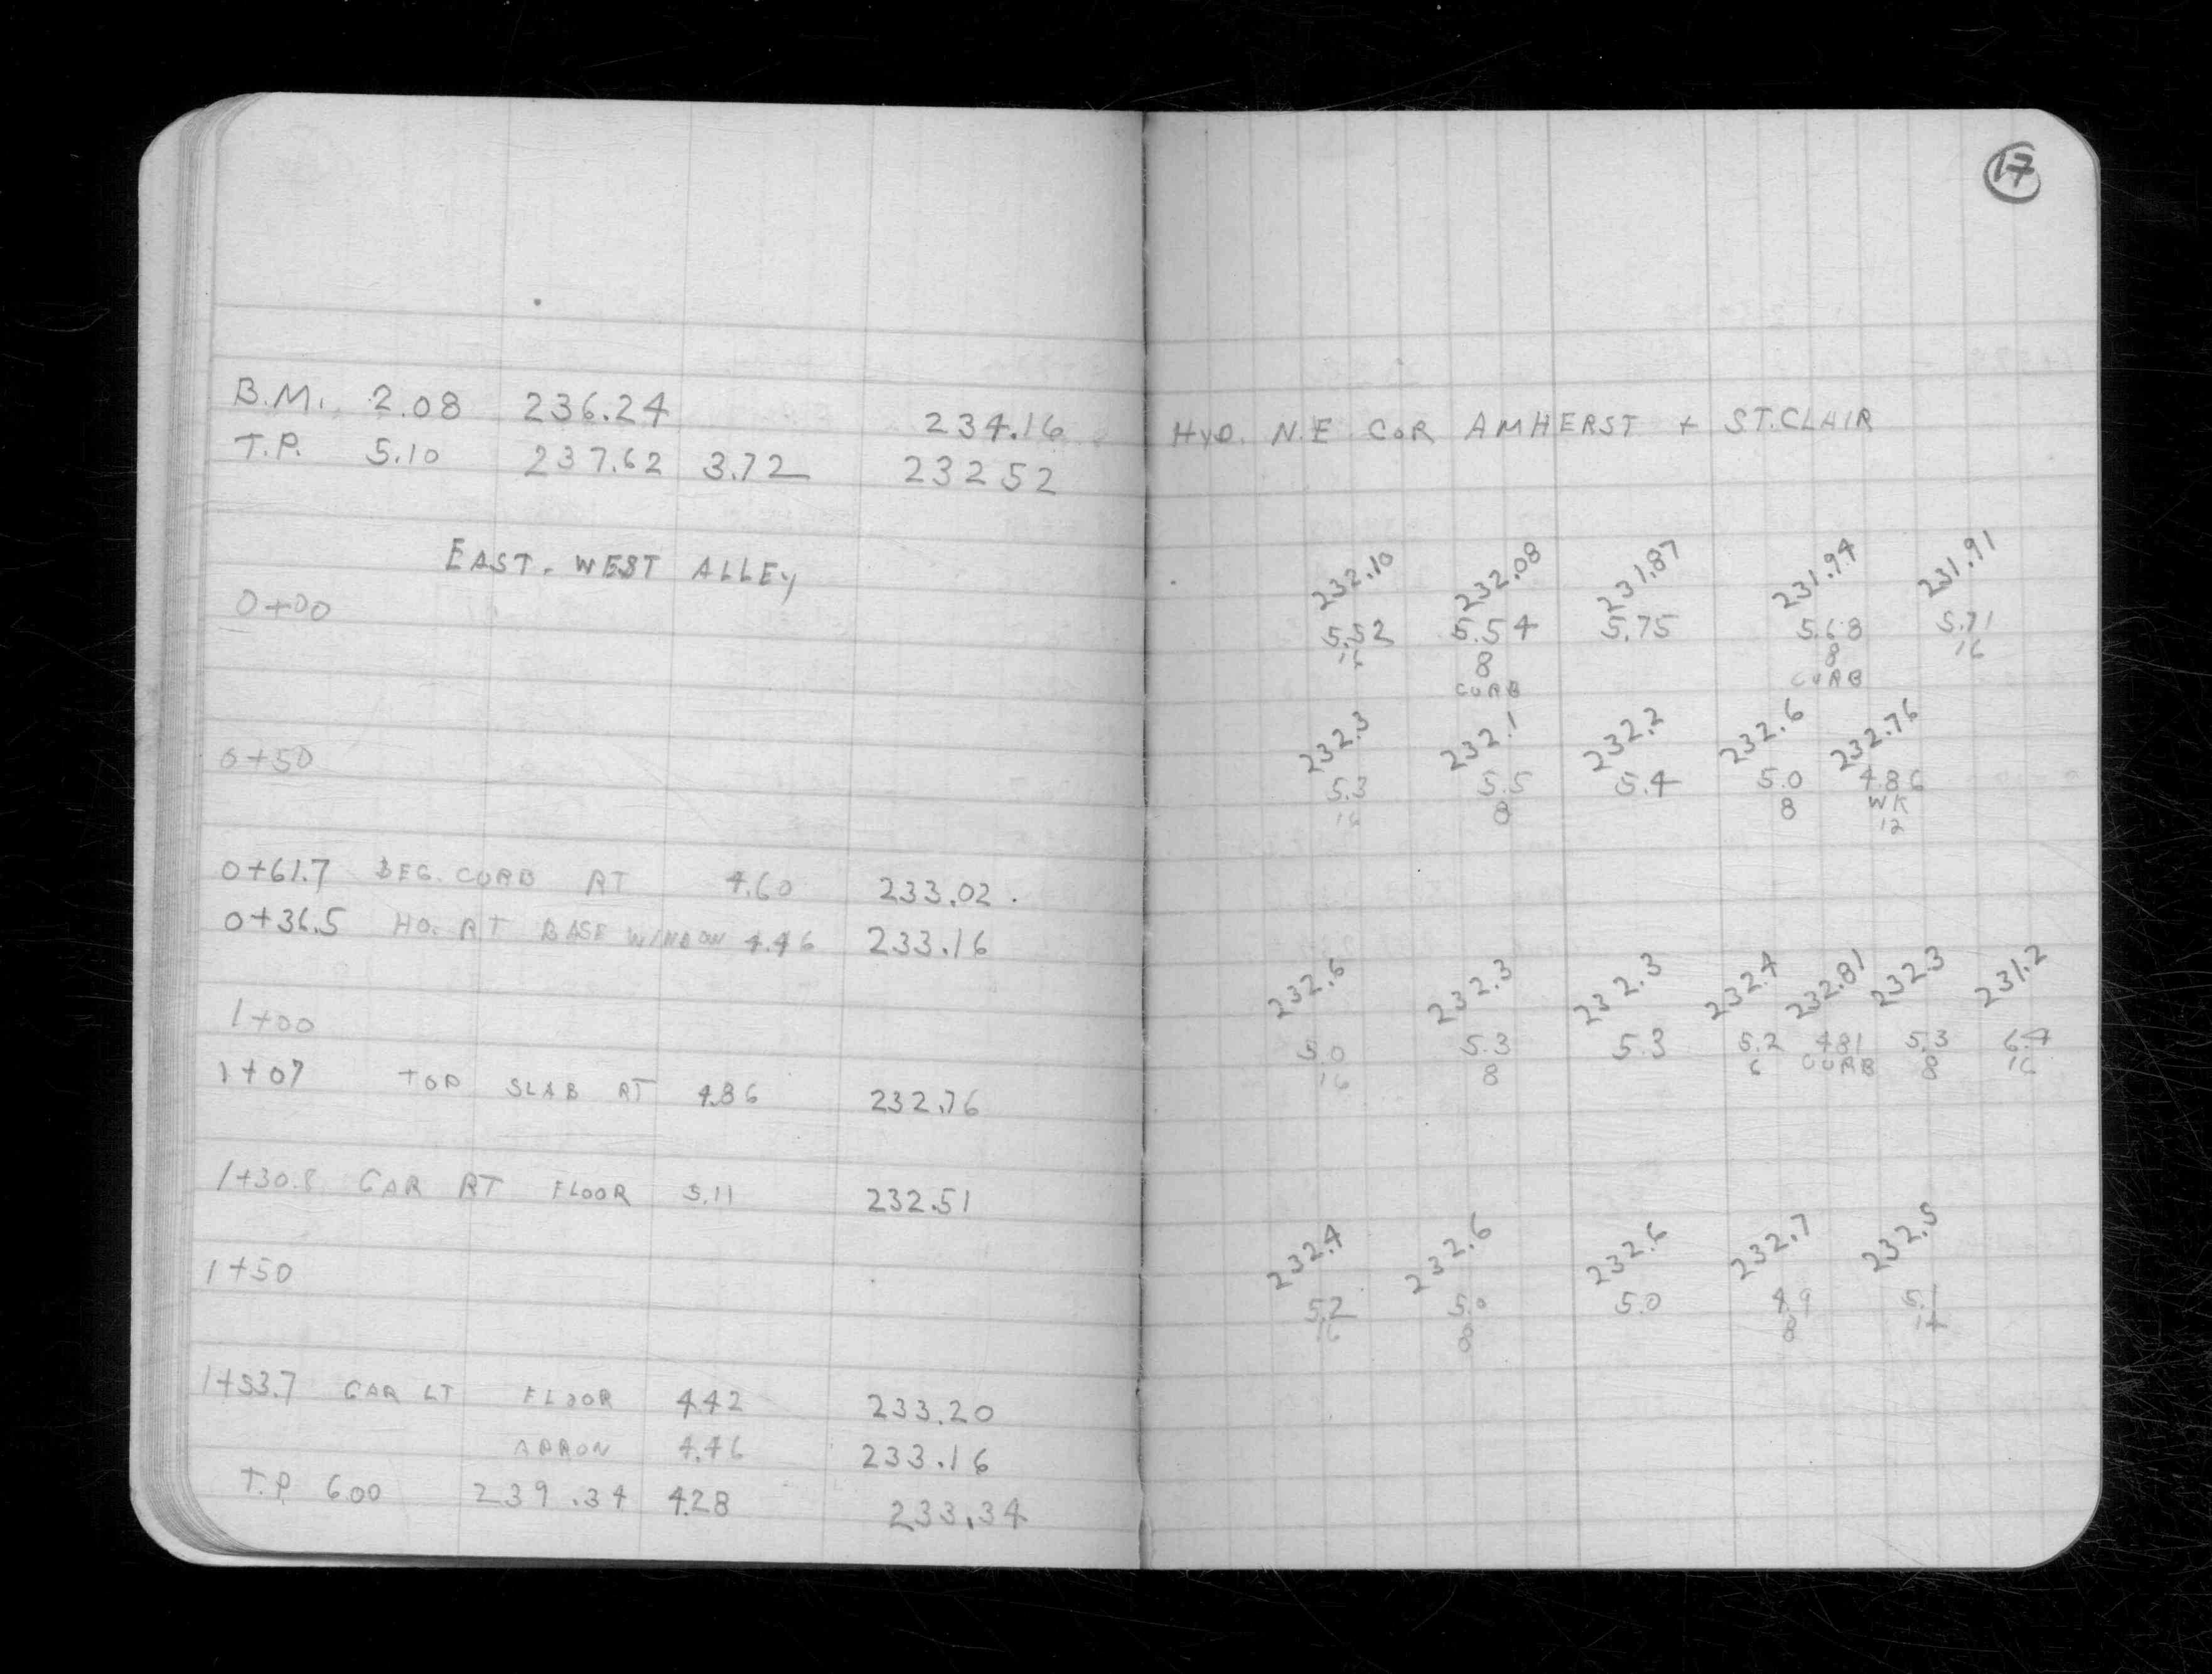 17
B.M. 2.08 236.24 234.16 HYD. N.E. COR AMHERST + ST.CLAIR
T.P. 5.10 237.62 3.72 232 52
EAST - WEST ALLEY
232.10 232.08 231.87 231.94 231.91
0+00 5.52 5.54 5.75 5.68 5.71
16 8 8 16
CURB CURB
232.3 232.1 232.2 232.6 232.76
0+50 5.3 5.5 5.4 5.0 4.86
16 8 8 WK
12
0+61.7 BEG. CURB RT 4.60 233.02
0+36.5 HO. RT BASE WINDOW 4.46 233.16
232.6 232.3 232.3 232.4 232.81 232.3 231.2
1+00 5.0 5.3 5.3 5.2 4.81 5.3 6.4
16 8 6 CURB 8 16
1+07 TOP SLAB RT 4.86 232.76
1+30.8 GAR RT FLOOR 5.11 232.51
232.4 232.6 232.6 232.7 232.5
1+50 5.2 5.0 5.0 4.9 5.1
16 8 8 14
1+53.7 GAR LT FLOOR 4.42 233.20
APRON 4.46 233.16
T.P. 6.00 239.34 4.28 233.34